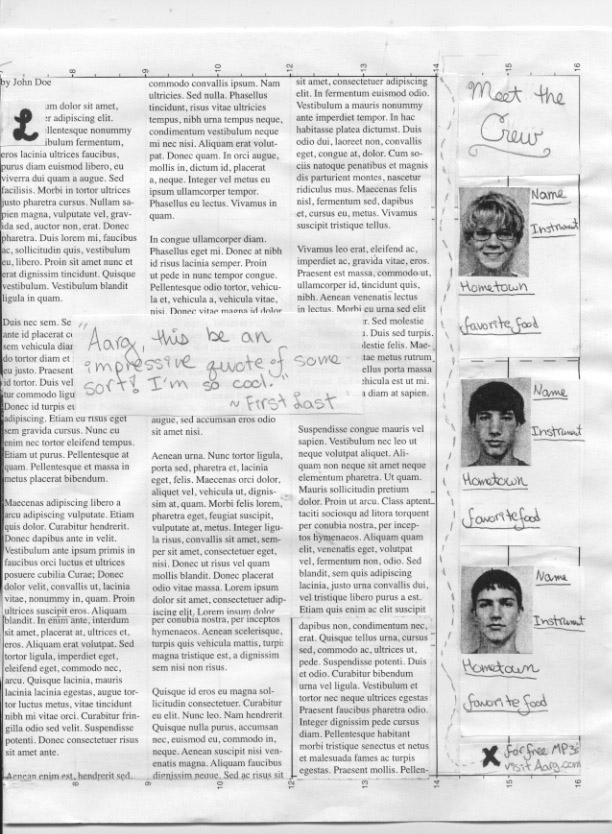 8
9
10
11
12
13
14
15
16
by John Doe
Lum dolor sit amet,
er adipiscing elit.
llentesque nonummy
ibulum fermentum,
eros lacinia ultrices faucibus,
purus diam euismod libero, eu
viverra dui quam a augue. Sed
facilisis. Morbi in tortor ultrices
justo pharetra cursus. Nullam sa-
pien magna, vulputate vel, grav-
ida sed, auctor non, erat. Donec
pharetra. Duis lorem mi, faucibus
ac, sollicitudin quis, vestibulum
eu, libero. Proin sit amet nunc et
erat dignissim tincidunt. Quisque
vestibulum. Vestibulum blandit
ligula in quam.
Duis nec sem. Se
ante id placerat o
sem vehicula diar
do tortor diam et
eu justo. Praesent
id tortor. Duis vel
tur commodo ligu
Donec id turpis et
adipiscing. Etiam eu risus eget
sem gravida cursus. Nunc eu
enim nec tortor eleifend tempus.
Etiam ut purus. Pellentesque at
quam. Pellentesque et massa in
metus placerat bibendum.
Maecenas adipiscing libero a
arcu adipiscing vulputate. Etiam
quis dolor. Curabitur hendrerit.
Donec dapibus ante in velit.
Vestibulum ante ipsum primis in
faucibus orci luctus et ultrices
posuere cubilia Curae; Donec
dolor velit, convallis ut, lacinia
vitae, nonummy in, quam. Proin
ultrices suscipit eros. Aliquam
blandit. In enim ante, interdum
sit amet, placerat at, ultrices et,
eros. Aliquam erat volutpat. Sed
tortor ligula, imperdiet eget,
eleifend eget, commodo nec,
arcu. Quisque lacinia, mauris
lacinia lacinia egestas, augue tor-
tor luctus metus, vitae tincidunt
nibh mi vitae orci. Curabitur frin-
gilla odio sed velit. Suspendisse
potenti. Donec consectetuer risus
sit amet ante.
Aenean enim est, hendrerit sed,
commodo convallis ipsum. Nam
ultricies. Sed nulla. Phasellus
tincidunt, risus vitae ultricies
tempus, nibh urna tempus neque,
condimentum vestibulum neque
mi nec nisi. Aliquam erat volut-
pat. Donec quam. In orci augue,
mollis in, dictum id, placerat
a, neque. Integer vel metus eu
ipsum ullamcorper tempor.
Phasellus eu lectus. Vivamus in
quam.
In congue ullamcorper diam.
Phasellus eget mi. Donec at nibh
id risus lacinia semper. Proin
ut pede in nunc tempor congue.
Pellentesque odio tortor, vehicu-
la et, vehicula a, vehicula vitae,
nisi. Donec vitae magna id dolor
"Aarg, this be an
impressive quote of some
sort! I'm so cool."
~ First Last
augue, sed accumsan eros odio
sit amet nisi.
Aenean urna. Nunc tortor ligula,
porta sed, pharetra et, lacinia
eget, felis. Maecenas orci dolor,
aliquet vel, vehicula ut, dignis-
sim at, quam. Morbi felis lorem,
pharetra eget, feugiat suscipit,
vulputate at, metus. Integer ligu-
la risus, convallis sit amet, sem-
per sit amet, consectetuer eget,
nisi. Donec ut risus vel quam
mollis blandit. Donec placerat
odio vitae massa. Lorem ipsum
dolor sit amet, consectetuer adip-
iscing elit. Lorem ipsum dolor
per conubia nostra, per inceptos
hymenaeos. Aenean scelerisque,
turpis quis vehicula mattis, turpis
magna tristique est, a dignissim
sem nisi non risus.
Quisque id eros eu magna sol-
licitudin consectetuer. Curabitur
eu elit. Nunc leo. Nam hendrerit
Quisque nulla purus, accumsan
nec, euismod eu, commodo in,
neque. Aenean suscipit nisi ven-
enatis magna. Aliquam faucibus
dignissim neque. Sed ac risus sit
sit amet, consectetuer adipiscing
elit. In fermentum euismod odio.
Vestibulum a mauris nonummy
ante imperdiet tempor. In hac
habitasse platea dictumst. Duis
odio dui, laoreet non, convallis
eget, congue at, dolor. Cum so-
ciis natoque penatibus et magnis
dis parturient montes, nascetur
ridiculus mus. Maecenas felis
nisl, fermentum sed, dapibus
et, cursus eu, metus. Vivamus
suscipit tristique tellus.
Vivamus leo erat, eleifend ac,
imperdiet ac, gravida vitae, eros.
Praesent est massa, commodo ut,
ullamcorper id, tincidunt quis,
nibh. Aenean venenatis lectus
in lectus. Morbi eu urna sed elit
r. Sed molestie
. Duis sed turpis.
olestie felis. Mae-
tae metus rutrum
ellus porta massa
hicula est ut mi.
a diam at sapien.
Suspendisse congue mauris vel
sapien. Vestibulum nec leo ut
neque volutpat aliquet. Ali-
quam non neque sit amet neque
elementum pharetra. Ut quam.
Mauris sollicitudin pretium
dolor. Proin ut arcu. Class aptent
taciti sociosqu ad litora torquent
per conubia nostra, per incep-
tos hymenaeos. Aliquam quam
elit, venenatis eget, volutpat
vel, fermentum non, odio. Sed
blandit, sem quis adipiscing
lacinia, justo urna convallis dui,
vel tristique libero purus a est.
Etiam quis enim ac elit suscipit
dapibus non, condimentum nec,
erat. Quisque tellus urna, cursus
sed, commodo ac, ultrices ut,
pede. Suspendisse potenti. Duis
et odio. Curabitur bibendum
urna vel ligula. Vestibulum et
tortor nec neque ultrices egestas
Praesent faucibus pharetra odio.
Integer dignissim pede cursus
diam. Pellentesque habitant
morbi tristique senectus et netus
et malesuada fames ac turpis
egestas. Praesent mollis. Pellen-
Meet the
Crew
Name
Instrument
Hometown
favorite food
Name
Instrument
Hometown
favorite food
Name
Instrument
Hometown
favorite food
X for free MP3s
visit Aarg.com
9
10
12
13
14
15
16